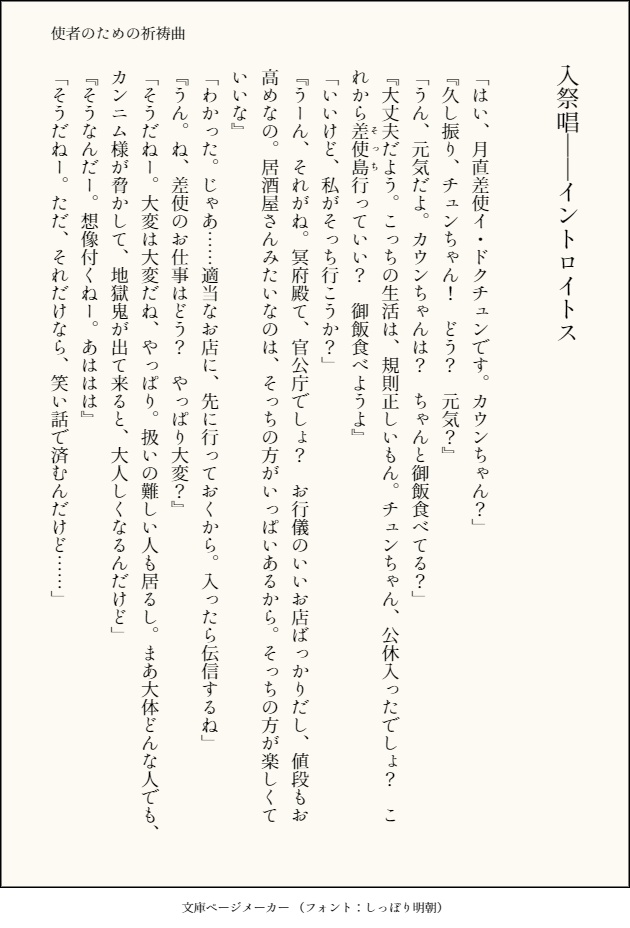 使者のための祈祷曲
入祭唱――イントロイトス
「はい、月直差使イ・ドクチュンです。カウンちゃん？」
『久し振り、チュンちゃん！　どう？　元気？』
「うん、元気だよ。カウンちゃんは？　ちゃんと御飯食べてる？」
『大丈夫だよう。こっちの生活は、規則正しいもん。チュンちゃん、公休入ったでしょ？　こ
れから差使島行っていい？　御飯食べようよ』
そっち
「いいけど、私がそっち行こうか？」
『うーん、それがね。冥府殿て、官公庁でしょ？　お行儀のいいお店ばっかりだし、値段もお
高めなの。居酒屋さんみたいなのは、そっちの方がいっぱいあるから。そっちの方が楽しくて
いいな』
「わかった。じゃあ……適当なお店に、先に行っておくから。入ったら伝信するね」
『うん。ね、差使のお仕事はどう？　やっぱり大変？』
「そうだねー。大変は大変だね、やっぱり。扱いの難しい人も居るし。まあ大体どんな人でも、
カンニム様が脅かして、地獄鬼が出て来ると、大人しくなるんだけど」
『そうなんだー。想像付くねー。あははは』
「そうだねー。ただ、それだけなら、笑い話で済むんだけど……」
文庫ページメーカー （フォント：しっぽり明朝）